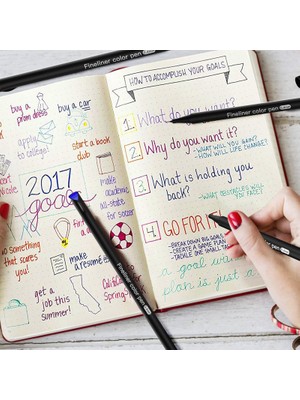 Fineliner color pen
buy a
prom dress
buy a car
apply
to college!
start a book
club
2017
goals
make
academic
all-state
for
soccer
do something
that scares
you!
make
a resumé
get a
job this
summer!
HOW TO ACCOMPLISH YOUR GOALS
1 What do you want?
2 Why do you want it?
-WHAT WILL YOU GAIN?
-HOW WILL LIFE CHANGE?
3 What is holding you
back?
-WHAT OBSTACLES WILL
YOU FACE?
4 GO FOR
-BREAK DOWN BIG GOALS
-CREATE A GAME PLAN
-TACKLE ONE SMALL
a goal
plan is just a
Fineliner color pen
Fineliner color pen